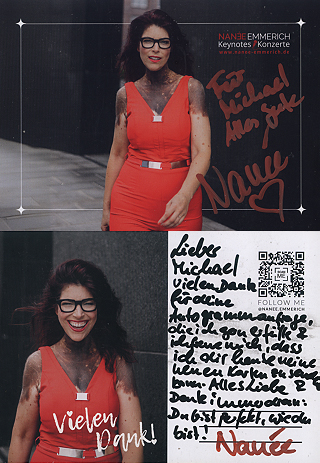 NANÉE EMMERICH
Keynotes / Konzerte
www.nanee-emmerich.de
Für
Michael
Alles Gute
Nanée
Vielen
Dank!
Lieber
Michael
vielen Dank
für deine
Autogrammanfrage,
die ich gern erfülle &
ich freue mich, dass
ich dir heute meine
neuen Karten zusenden
kann. Alles Liebe &
Danke! immer dran:
Du bist perfekt, wie du
bist!
FOLLOW ME
@NANEE.EMMERICH
Nanée